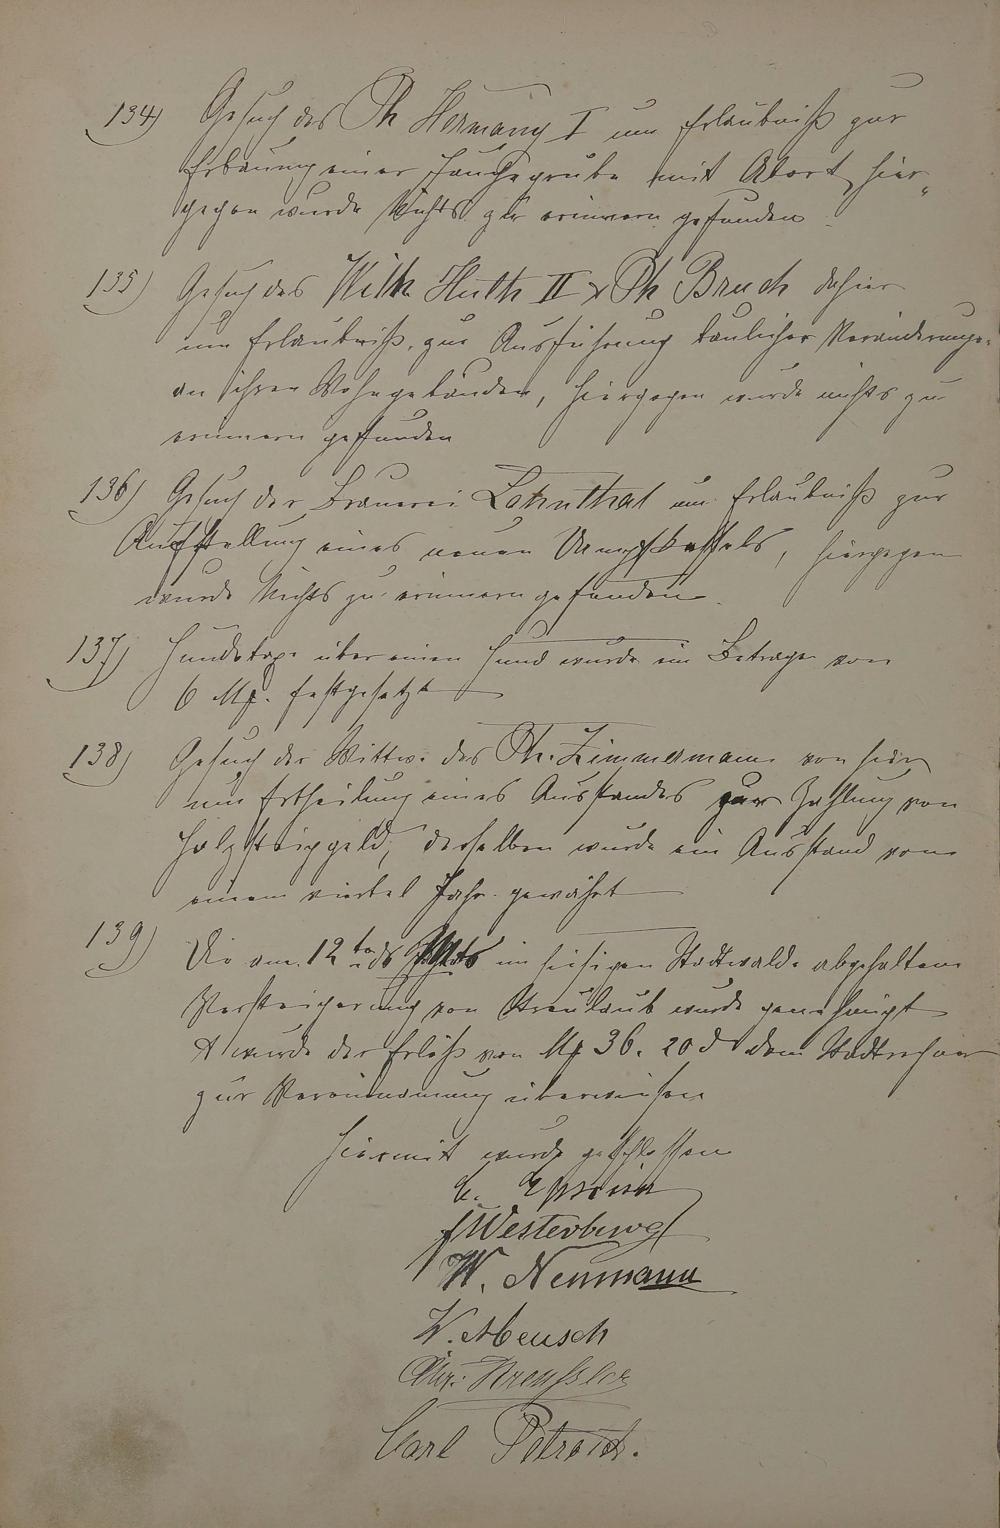 134) Gesuch des Ph Hermany I um Erlaubniß zur
Erbauung einer Jauchegrube mit Abort, hier„
gegen wurde Nichts zu erinnern gefunden.
135) Gesuch des Wilh. Huth II & Ph Bruch dahier
um Erlaubniß, zur Ausführung baulicher Veränderunge=
an ihren Wohngebäuden, hiergegen wurde nichts zu
erinnern gefunden
136) Gesuch der Brauerei um Erlaubniß zur
Aufstellung eines neuen Dampfkessels, hiergegen
wurde Nichts zu erinnern gefunden.
137) Hundetaxe über einen Hund wurde im Betrage von
6 Mk. festgesetzt
138) Gesuch der Wittwe des Ph. Zimmermann von hier
um Ertheilung eines Ausstandes zur Zahlung von
Holzsteiggeld, derselben wurde ein Ausstand von
einem viertel Jahr gewährt
139) Die am 12ten ds Mts im hiesigen Stadtwalde abgehaltene
Versteigerung von Streulaub wurde genehmigt
& wurde der Erlöß von Mk 36. 20 d dem Stadtrechner
zur Vereinnahmung überwiesen
Hiermit wurde geschlossen
Westerburg
W. Neumann
W. Mensch
Chr: Kreußler
Carl